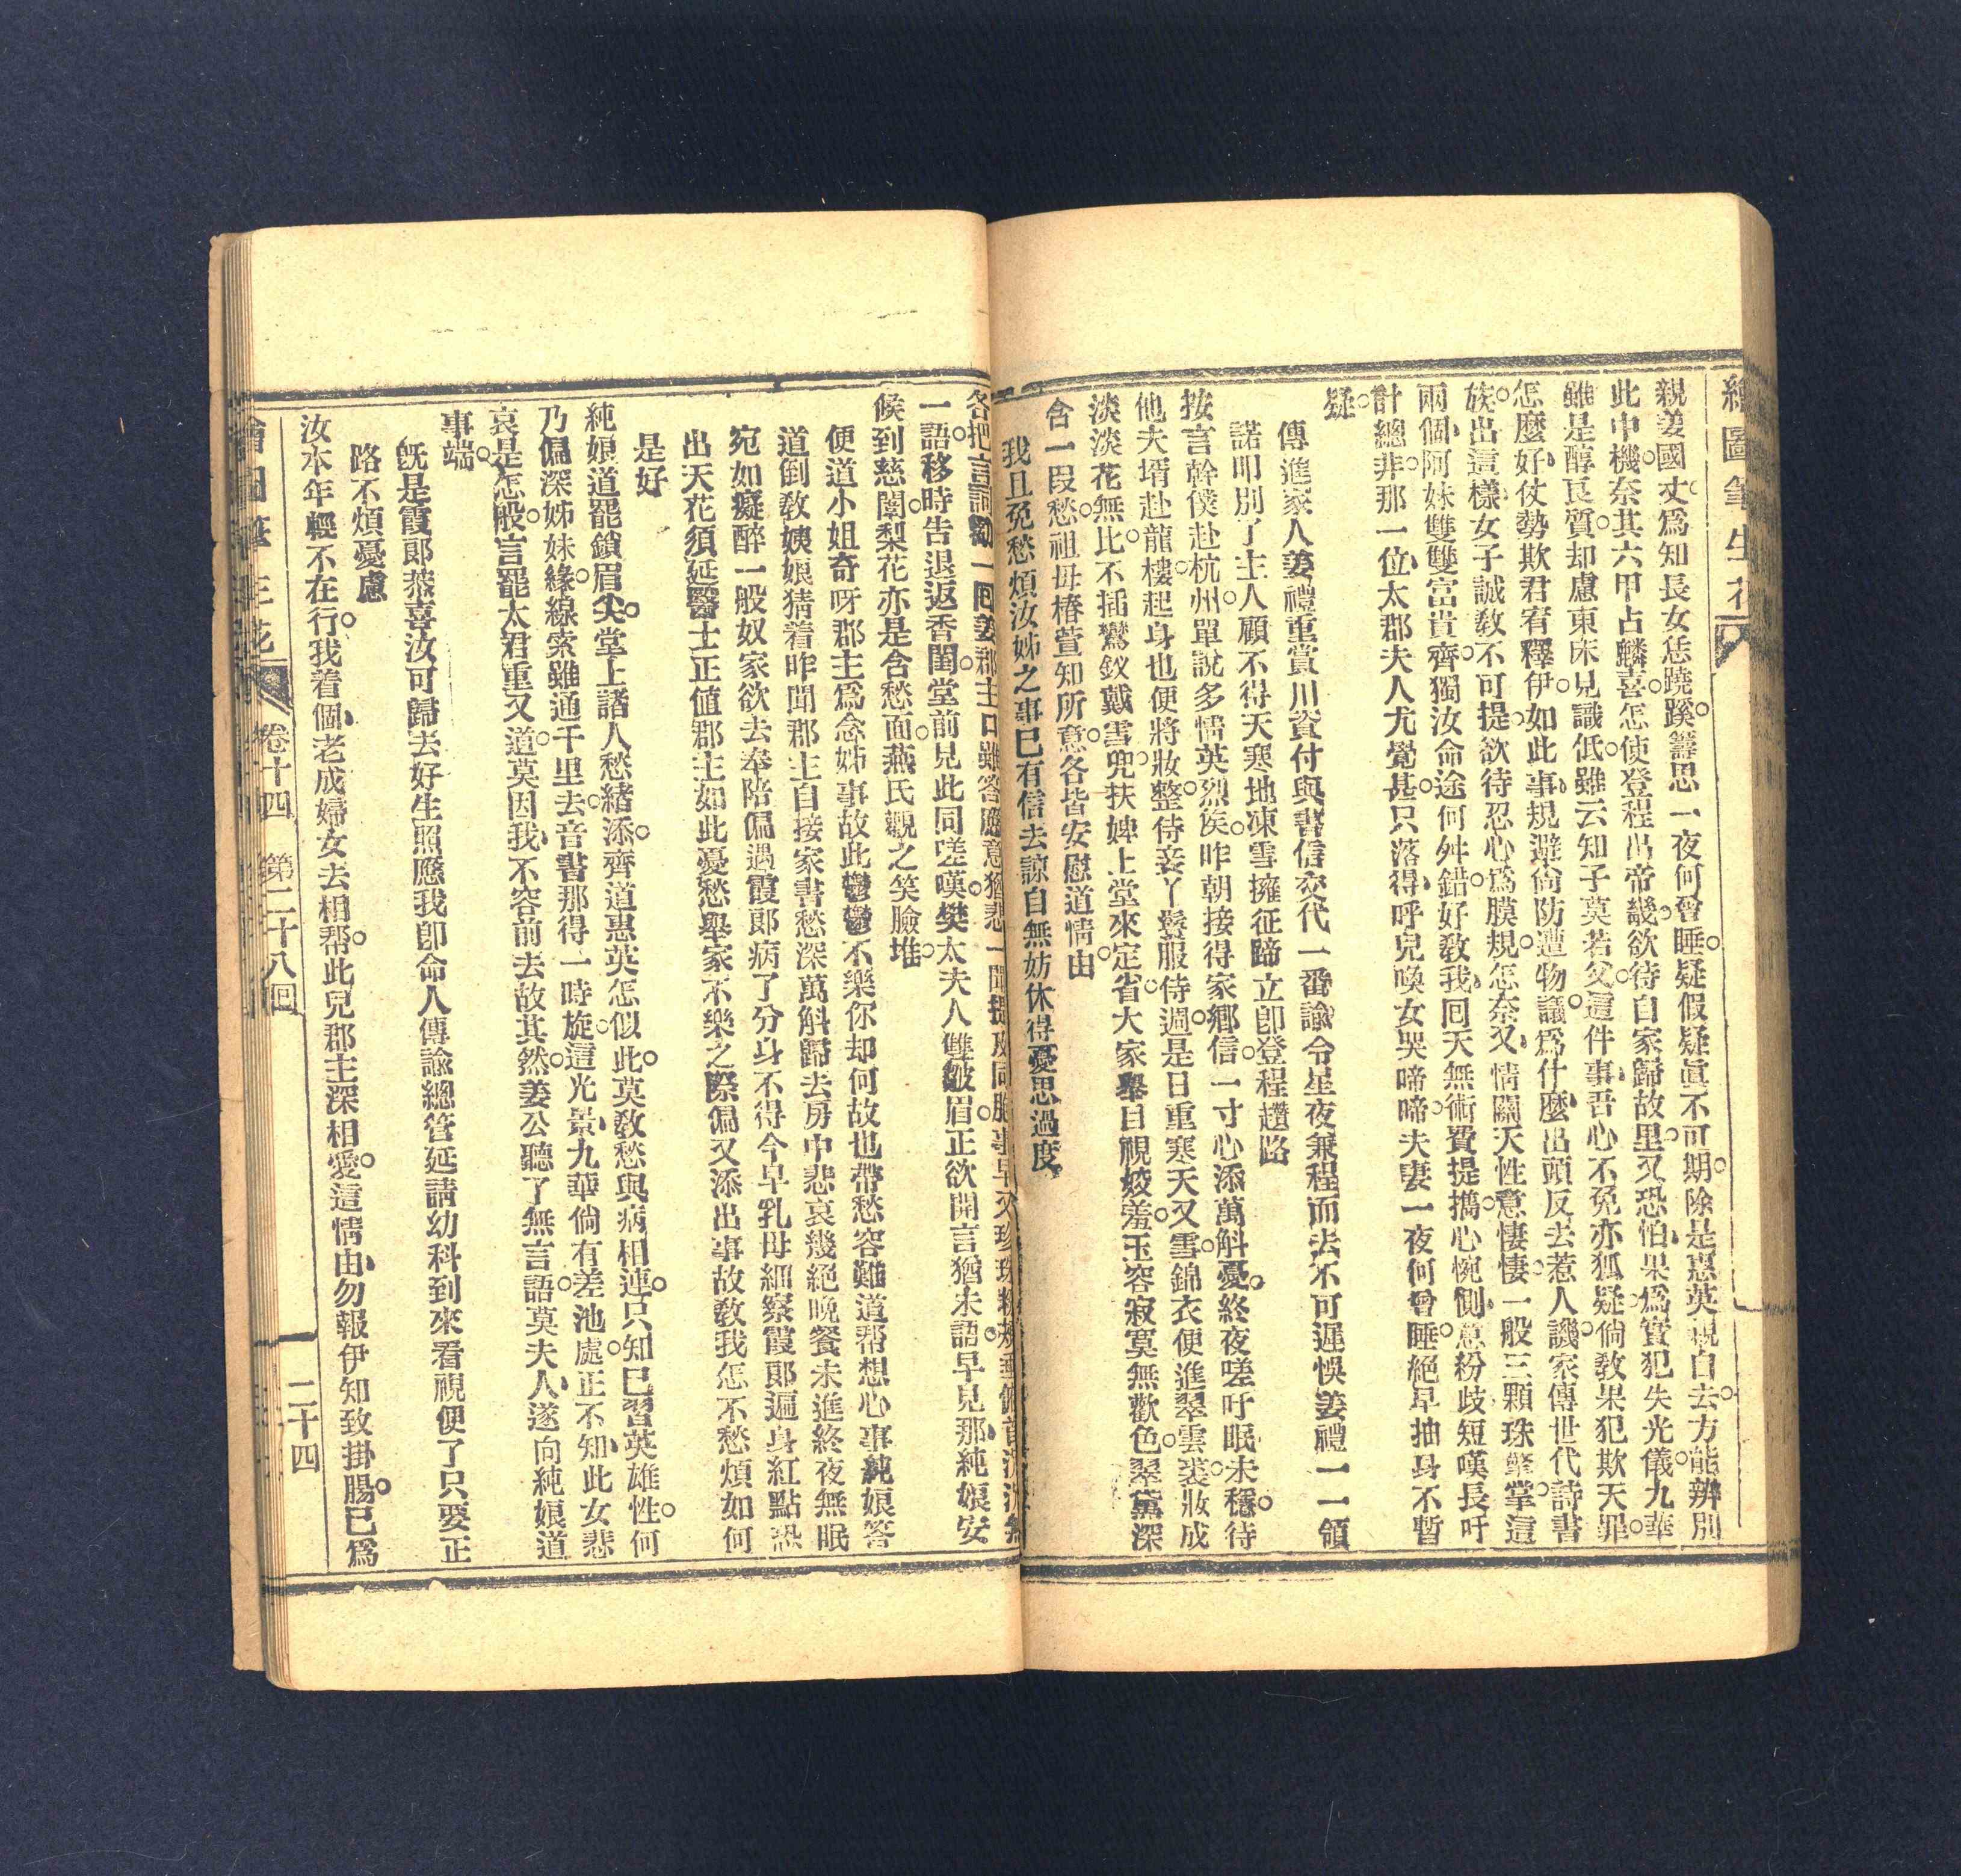 繪圖筆生花
親姜國丈爲知長女恁蹺蹊籌思一夜何曾睡疑假疑眞不可期除是惠英親自去方能辨別
此中機奈其六甲占麟喜怎使登程出帝畿欲待自家歸故里又恐怕果爲實犯失光儀九華
雖是醇良質却慮東床見識低雖云知子莫若父這件事吾心不免亦狐疑倘教果犯欺天罪
怎麼好仗勢欺君宥釋伊如此事規避尙防遭物議爲什麼出頭反去惹人譏家傳世代詩書
族出這樣女子誠教不可提欲待忍心爲膜規怎奈又情關天性意悽悽一般三顆珠擎掌這
兩個阿妹雙雙富貴齊獨汝命途何舛錯好教我回天無術費提攜心惋惻意紛歧短嘆長吁
計總非那一位太郡夫人尤覺甚只落得呼兒喚女哭啼啼夫妻一夜何曾睡絕早抽身不暫
疑
傳進家人姜禮重賞川資付與書信交代一番諭令星夜兼程而去不可遲悞姜禮一一領
諾叩別了主人顧不得天寒地凍雪擁征蹄立卽登程趲路
按言幹僕赴杭州單說多情英烈侯昨朝接得家鄉信一寸心添萬斛憂終夜嗟吁眠未穩待
他夫壻赴龍樓起身也便將妝整侍妾丫鬟服侍週是日重寒天又雪錦衣便進翠雲裘妝成
淡淡花無比不插鸞釵戴雪兜扶婢上堂來定省大家舉目視姣羞玉容寂寞無歡色翠黛深
含一段愁祖母椿萱知所意各皆安慰道情由
我且免愁煩汝姊之事已有信去諒自無妨休得憂思過度
各把言詞勸一回姜郡主口雖答應意猶悲一聞提及同胞事早又珍珠粉頰垂俯首沉沉無
一語移時告退返香閨堂前見此同嗟嘆樊太夫人雙皺眉正欲開言猶未語早見那純娘安
候到慈闈梨花亦是含愁面燕氏觀之笑臉堆
便道小姐奇呀郡主爲念姊事故此鬱鬱不樂你却何故也帶愁容難道帮想心事純娘答
道倒教姨娘猜着昨聞郡主自接家書愁深萬斛歸去房中悲哀幾絕晚餐未進終夜無眠
宛如癡醉一般奴家欲去奉陪偏遇霞郞病了分身不得今早乳母細察霞郞遍身紅點恐
出天花須延醫士正值郡主如此憂愁舉家不樂之際偏又添出事故教我怎不愁煩如何
是好
純娘道罷鎖眉尖堂上諸人愁緒添齊道惠英怎似此莫教愁與病相連只知已習英雄性何
乃偏深姊妹緣線索雖通千里去音書那得一時旋這光景九華倘有差池處正不知此女悲
哀是怎般言罷太君重又道莫因我不容前去故其然姜公聽了無言語莫夫人遂向純娘道
事端
旣是霞郞恭喜汝可歸去好生照應我卽命人傳諭總管延請幼科到來看視便了只要正
路不煩憂慮
汝本年輕不在行我着個老成婦女去相帮此兒郡主深相愛這情由勿報伊知致掛腸已爲
繪圖筆生花 卷十四 第二十八回 二十四